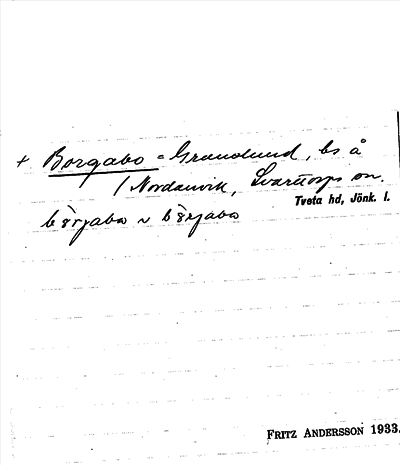 + Borgabo = Granelund, bs å
/ Nordanvik, Svarttorps sn.
Tveta hd, Jönk. l.
börjabo ~ börjabo
FRITZ ANDERSSON 1933.